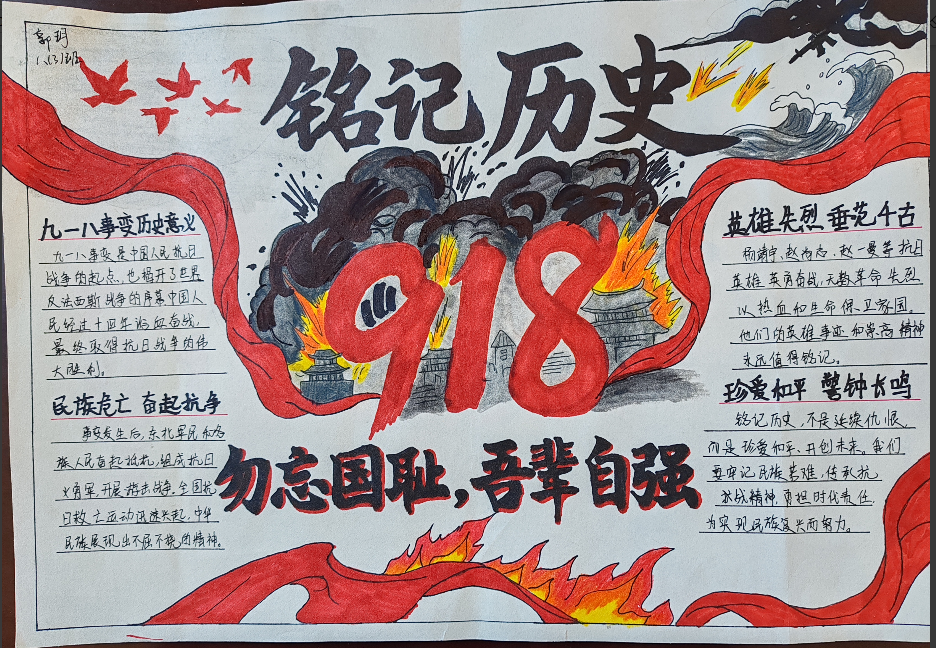 郭玥
八(3)班
铭记历史
九一八事变历史意义
九一八事变是中国人民抗日
战争的起点,也揭开了世界
反法西斯战争的序幕中国人
民经过十四年浴血奋战,
最终取得抗日战争的伟
大胜利。
民族危亡 奋起抗争
事变发生后,东北军民和各
族人民奋起抵抗,组成抗日
义勇军,开展游击战争,全国抗
日救亡运动迅速兴起,中华
民族展现出不屈不挠的精神。
918
勿忘国耻,吾辈自强
英雄先烈 垂范千古
杨靖宇,赵尚志,赵一曼等抗日
英雄英勇奋战,无数革命先烈
以热血和生命保卫家园。
他们的英雄事迹和崇高精神
永远值得铭记。
珍爱和平 警钟长鸣
铭记历史,不是延续仇恨,
而是珍爱和平、开创未来。我们
要牢记民族苦难,传承抗
战精神,勇担时代责任
为实现民族复兴而努力。